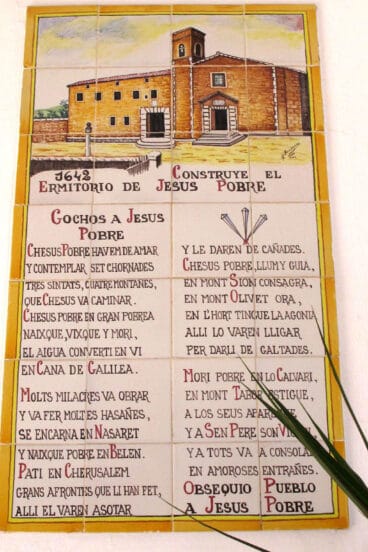 1642 CONSTRUYE EL
ERMITORIO DE JESUS POBRE
GOCHOS A JESUS
POBRE
CHESUS POBRE HAVEM DE AMAR
Y CONTEMPLAR SET CHORNADES
TRES SINTATS, CUATRE MONTANES,
QUE CHESUS VA CAMINAR.
CHESUS POBRE EN GRAN POBREA
NAIXQUE, VIXQUE Y MORI,
EL AIGUA CONVERTI EN VI
EN CANA DE GALILEA.
MOLTS MILACRES VA OBRAR
Y VA FER MOLTES HASAÑES,
SE ENCARNA EN NASARET
Y NAIXQUE POBRE EN BELEN.
PATI EN CHERUSALEM
GRANS AFRONTES QUE LI HAN FET,
ALLI EL VAREN ASOTAR
Y LE DAREN DE CAÑADES.
CHESUS POBRE, LLUM Y GUIA,
EN MONT SION CONSAGRA,
EN MONT OLIVET ORA,
EN L'HORT TINGUE LA AGONIA
ALLI LO VAREN LLIGAR
PER DARLI DE GALTADES.
MORI POBRE EN LO CALVARI,
EN MONT TABOR ESTIGUE,
A LOS SEUS
Y A SEN PERE SON
Y A TOTS VA A CONSOLAR
EN AMOROSES ENTRAÑES.
OBSEQUIO PUEBLO
A JESUS POBRE